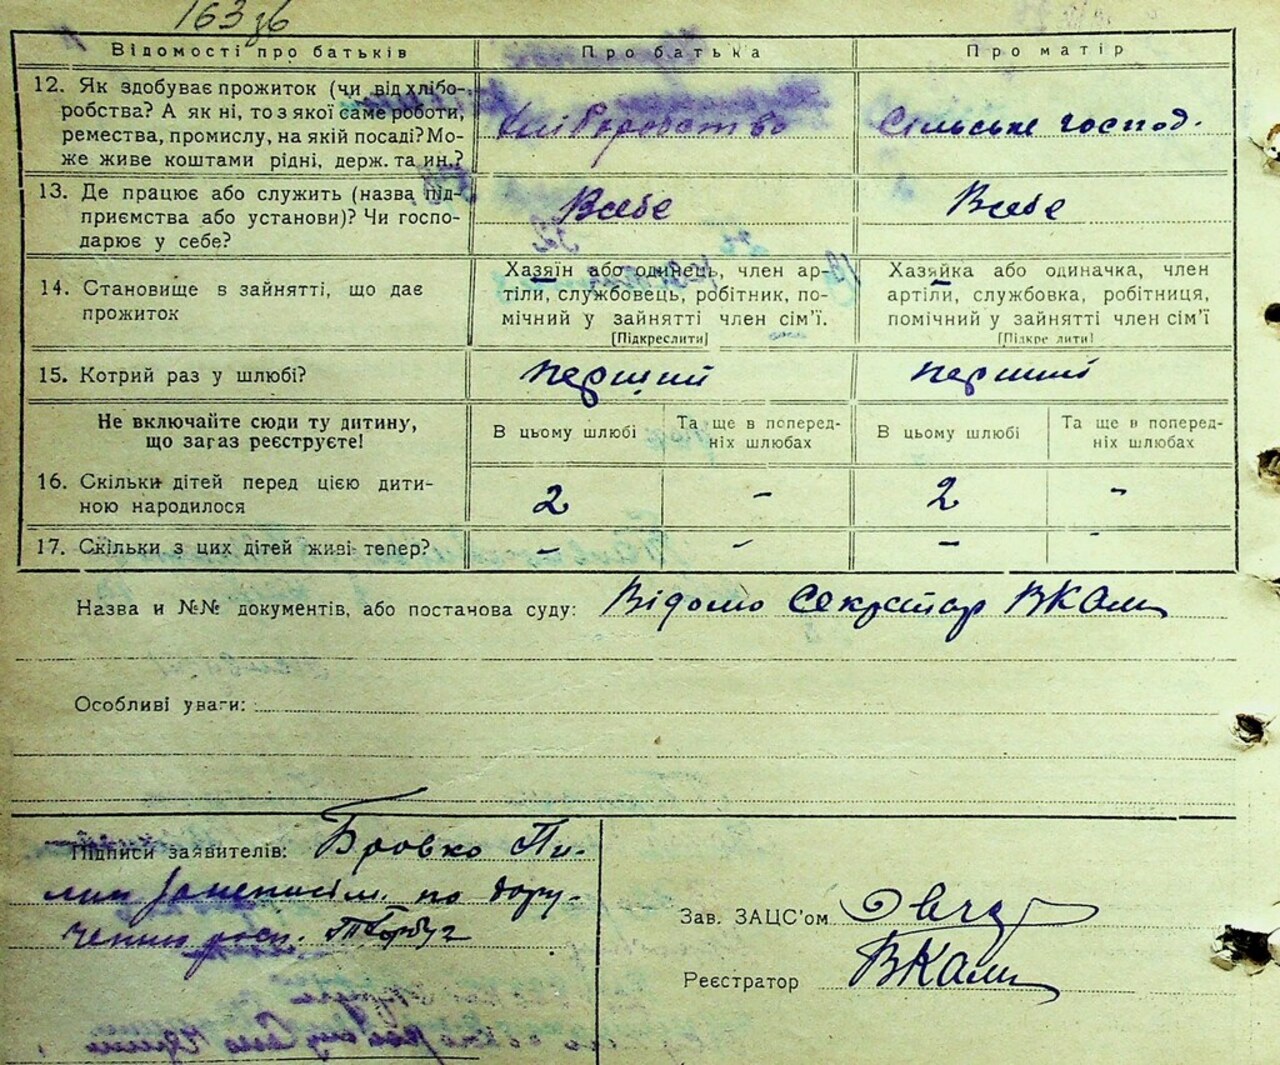 163 зв
Відомості про батьків
Про батька
Про матір
12. Як здобуває прожиток (чи від хлібо-
робства? А як ні, то з якої саме роботи,
ремества, промислу, на якій посаді? Мо-
же живе коштами рідні, держ. та ин.?
Хліборобство
Сільське господ.
13. Де працює або служить (назва під-
приємства або установи)? Чи госпо-
дарює у себе?
В себе
В себе
14. Становище в зайнятті, що дає
прожиток
Хазяїн або одинець, член ар-
тіли, службовець, робітник, по-
мічний у зайнятті член сім'ї.
[Підкреслити]
Хазяйка або одиначка, член
артіли, службовка, робітниця,
помічний у зайнятті член сім'ї
[Підкре лити]
15. Котрий раз у шлюбі?
перший
перший
Не включайте сюди ту дитину,
що загаз реєструєте!
В цьому шлюбі
Та ще в поперед-
ніх шлюбах
В цьому шлюбі
Та ще в поперед-
ніх шлюбах
16. Скільки дітей перед цією дити-
ною народилося
2
-
2
-
17. Скільки з цих дітей живі тепер?
-
-
-
-
Назва и №№ документів, або постанова суду: Відомо Секретар
Особливі уваги:
Підписи заявителів: Бровко Пи-
лип по дору-
ченню
Зав. ЗАЦС'ом
Реєстратор